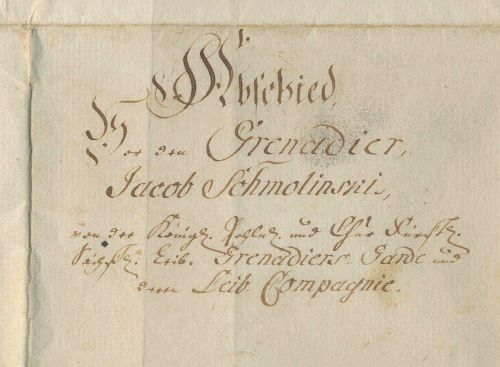 Abschied,
Vor den Grenadier,
Jacob Schmolinski,
von der Königl. Pohln. und Chur Fürstl.
Sächß. Leib-Grenadiers-Garde und
dero Leib Compagnie.